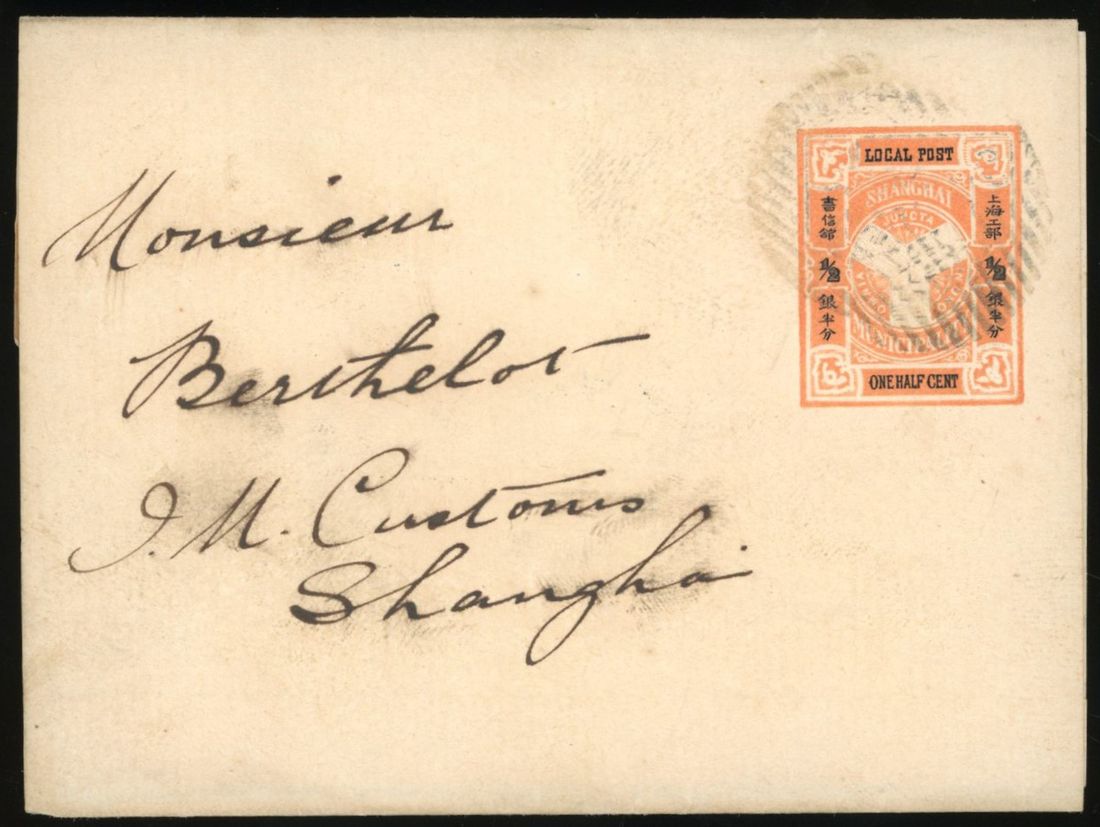 Monsieur
Berthelot
I. M. Customs
Shanghai
LOCAL POST
SHANGHAI
JUNCTA
MUNICIPALITY
書信館
上海工部
1/2
1/2
銀半分
銀半分
ONE HALF CENT